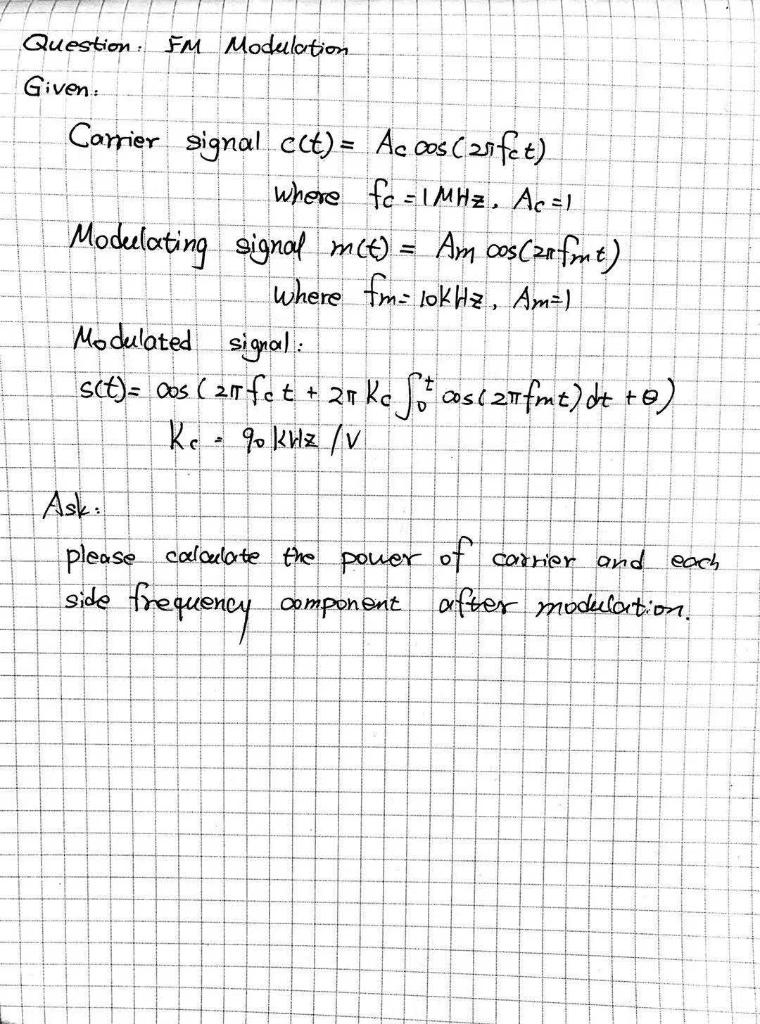 Question: FM Modulation
Given:
Carrier signal c(t) = Ac cos(2πfct)
where fc = 1MHz, Ac = 1
Modulating signal m(t) = Am cos(2πfmt)
where fm = 10kHz, Am = 1
Modulated signal:
s(t) = cos(2πfct + 2πKc ∫₀ᵗ cos(2πfmt)dt + θ)
Kc = 90kHz/V
Ask:
please calculate the power of carrier and each
side frequency component after modulation.